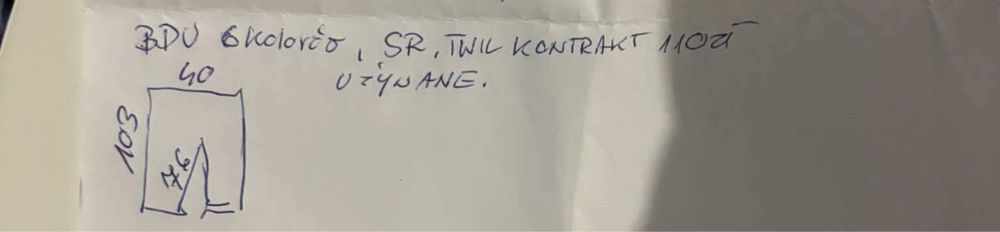 BDU 6 kolorów, SR, TWIL KONTRAKT 110zł
UŻYWANE.
40
103
76